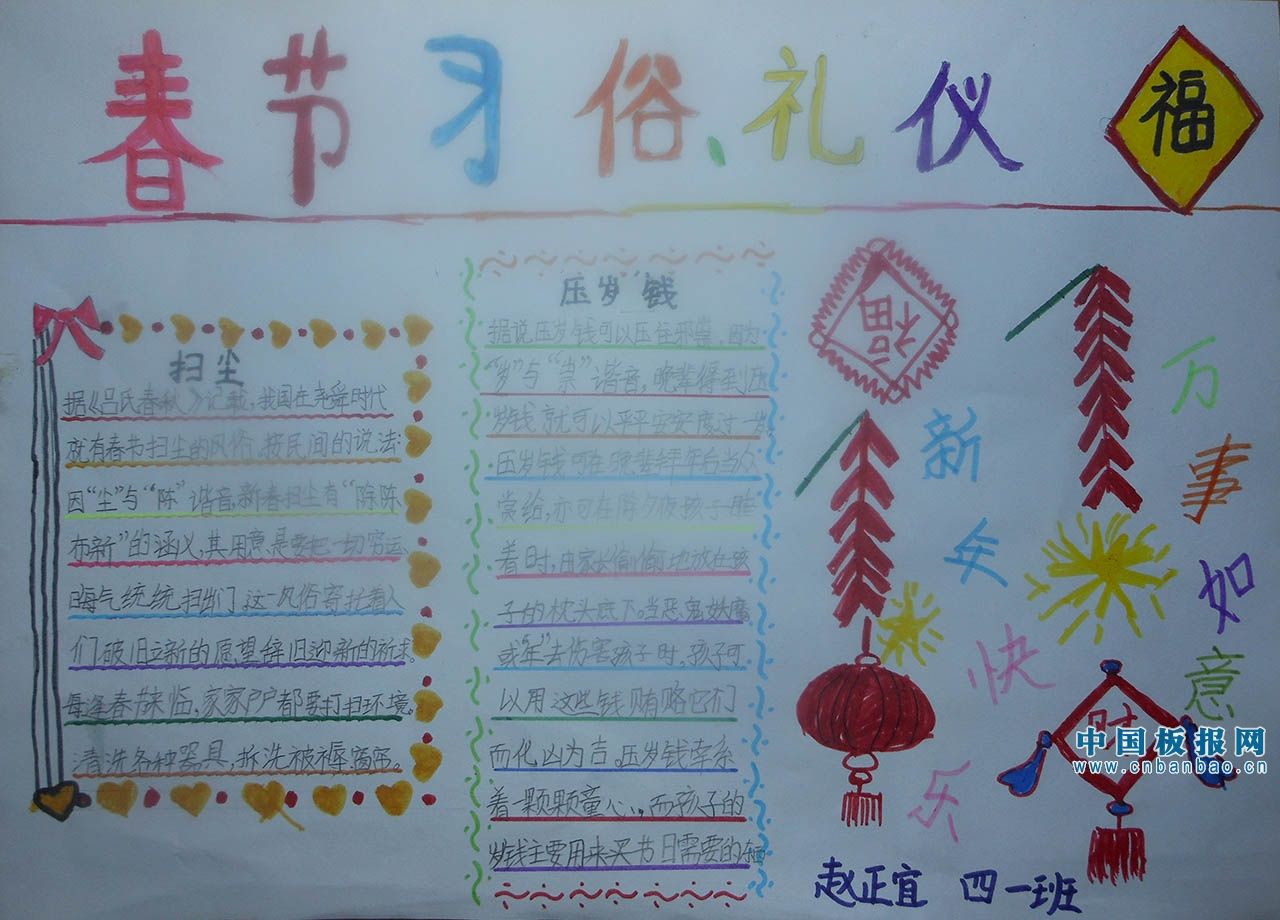 春节习俗、礼仪
福
扫尘
据《吕氏春秋》记载,我国在尧舜时代
就有春节扫尘的风俗。按民间的说法:
因“尘”与“陈”谐音,新春扫尘有“除陈
布新”的涵义,其用意是要把一切穷运、
晦气统统扫出门。这一风俗寄托着人
们破旧立新的愿望辞旧迎新的祈求。
每逢春节来临,家家户户都要打扫环境,
清洗各种器具,拆洗被褥窗帘。
压岁钱
据说压岁钱可以压住邪祟,因为
“岁”与“祟”谐音,晚辈得到压
岁钱就可以平平安安度过一岁
压岁钱可在晚辈拜年后当众
赏给,亦可在除夕夜孩子睡
着时,由家长偷偷地放在孩
子的枕头底下。当恶鬼妖魔
或“年”去伤害孩子时,孩子可
以用这些钱贿赂它们
而化凶为吉。压岁钱牵系
着一颗颗童心,而孩子的
岁钱主要用来买节日需要的东西
福
新年快乐
万事如意
财
中国板报网
www.cnbanbao.cn
赵正宜 四一班